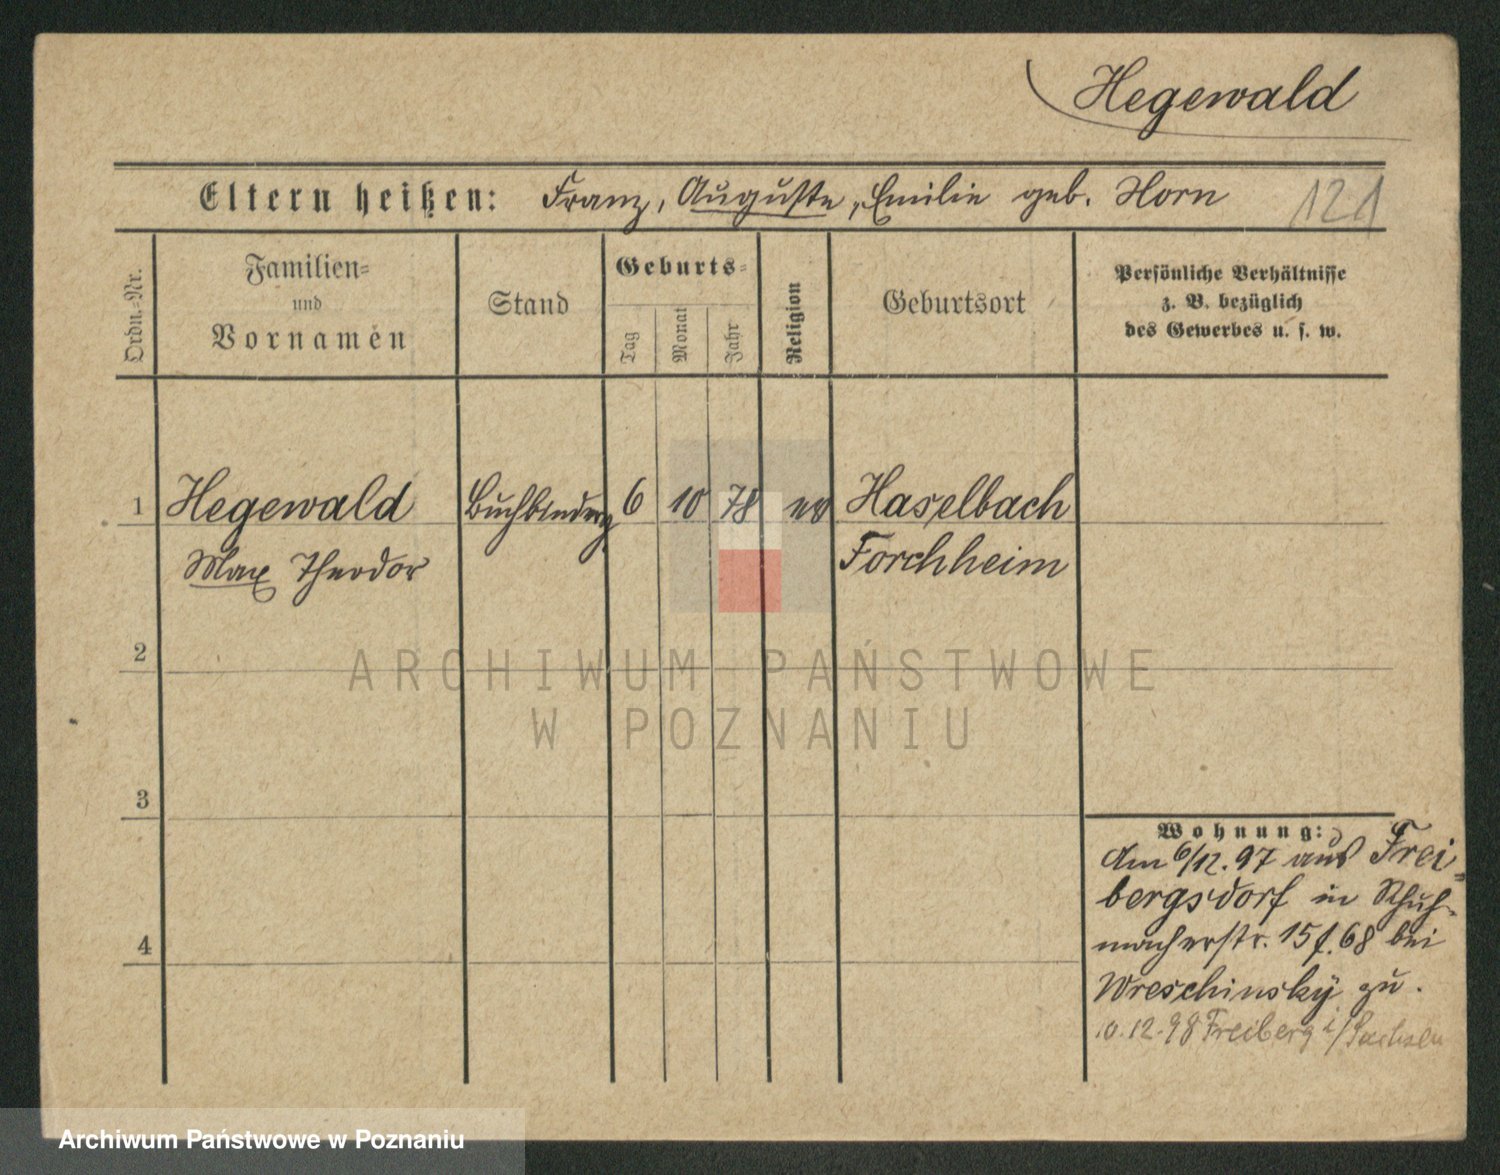 Hegewald
Eltern heißen: Franz, Auguste, Emilie geb. Horn 121
Ordn.-Nr.
Familien-
und
Vornamen
Stand
Geburts-
Tag
Monat
Jahr
Religion
Geburtsort
Persönliche Verhältnisse
z. B. bezüglich
des Gewerbes u. s. w.
1 Hegewald Buchbinderg 6 10 78 ev Haselbach
Max Theodor Forchheim
2
3
4
Wohnung:
Am 6/12. 97 aus Frei-
bergsdorf in Schuh-
macherstr. 15 f. 68 bei
Wreschinsky zu.
.12.98 Freiberg i/Sachsen
ARCHIWUM PAŃSTWOWE
W POZNANIU
Archiwum Państwowe w Poznaniu